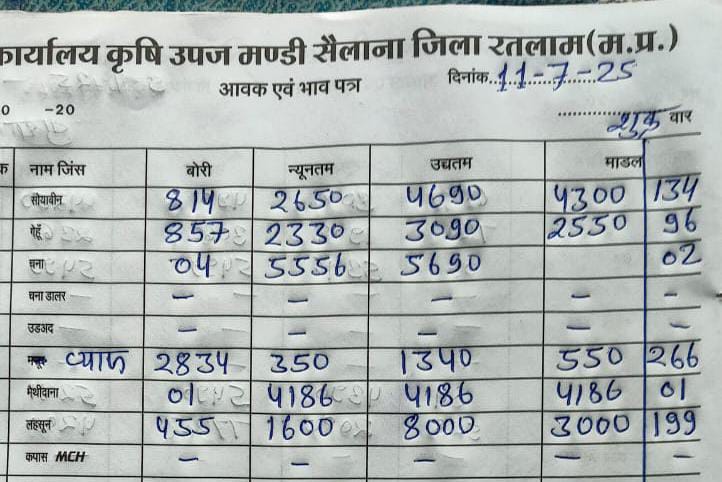 कार्यालय कृषि उपज मण्डी सैलाना जिला रतलाम(म.प्र.)
आवक एवं भाव पत्र दिनांक..11-7-25
0 -20
शुक्र वार
क नाम जिंस बोरी न्यूनतम उच्चतम माडल
सोयाबीन 814 2650 4690 4300 134
गेहूँ 857 2330 3090 2550 96
चना 04 5556 5690 02
चना डालर — — — — —
उडअद — — — — —
प्याज 2834 350 1340 550 266
मैथीदाना 01 4186 4186 4186 01
लहसून 455 1600 8000 3000 199
कपास MCH — — — — —